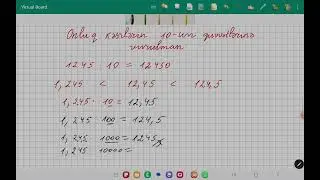 Virtual Board
Onluq kəsrlərin 10-un
1245 · 10 = 12450
1,245 < 12,45 < 124,5
1,245 · 10 = 12,45
1,245 · 100 = 124,5
1,245 · 1000 = 1245,
1,245 · 10000 =